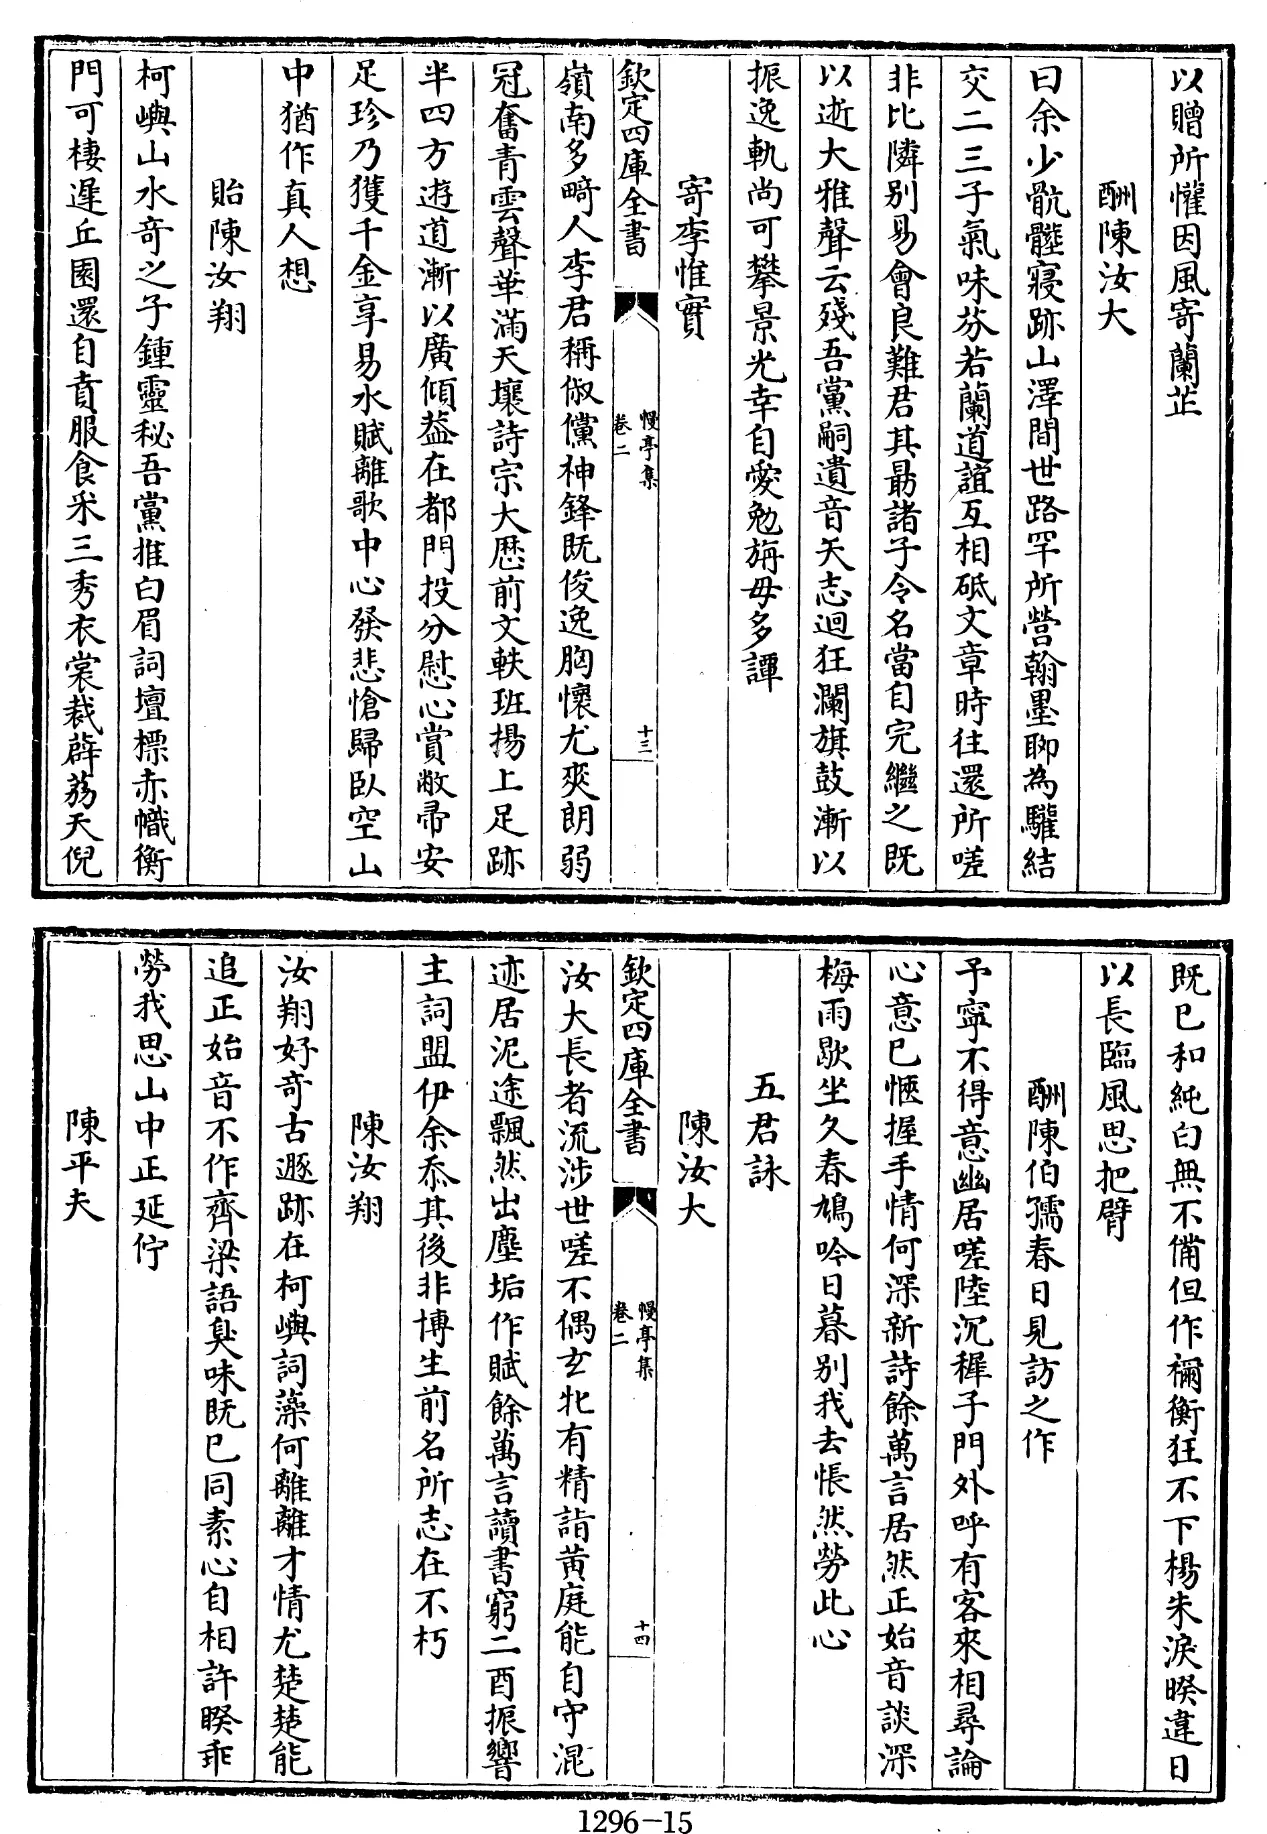 以贈所懽因風寄蘭芷
酬陳汝大
曰余少骯髒寢跡山澤間世路罕所營翰墨聊為驩結
交二三子氣味芬若蘭道誼互相砥文章時往還所嗟
非比隣別易會良難君其勗諸子令名當自完繼之既
以逝大雅聲云殘吾黨嗣遺音矢志迴狂瀾旗鼓漸以
振逸軌尚可攀景光幸自愛勉旃毋多譚
寄李惟實
欽定四庫全書
幔亭集
卷二
十三
嶺南多畸人李君稱俶儻神鋒既俊逸胸懷尤爽朗弱
冠奮青雲聲華滿天壤詩宗大厯前文軼班揚上足跡
半四方遊道漸以廣傾葢在都門投分慰心賞敝帚安
足珍乃獲千金享易水賦離歌中心發悲愴歸臥空山
中猶作真人想
貽陳汝翔
柯嶼山水奇之子鍾靈秘吾黨推白眉詞壇標赤幟衡
門可棲遲丘園還自賁服食米三秀衣裳裁薜荔天倪
既已和純白無不備但作禰衡狂不下楊朱淚睽違日
以長臨風思把臂
酬陳伯孺春日見訪之作
予寧不得意幽居嗟陸沉穉子門外呼有客來相尋論
心意已愜握手情何深新詩餘萬言居然正始音談深
梅雨歇坐久春鳩吟日暮別我去悵然勞此心
五君詠
陳汝大
欽定四庫全書
幔亭集
卷二
十四
汝大長者流涉世嗟不偶玄牝有精詣黄庭能自守混
迹居泥途飄然出塵垢作賦餘萬言讀書窮二酉振響
主詞盟伊余忝其後非博生前名所志在不朽
陳汝翔
汝翔好奇古遯跡在柯嶼詞藻何離離才情尤楚楚能
追正始音不作齊梁語臭味既已同素心自相許睽乖
勞我思山中正延佇
陳平夫
1296-15